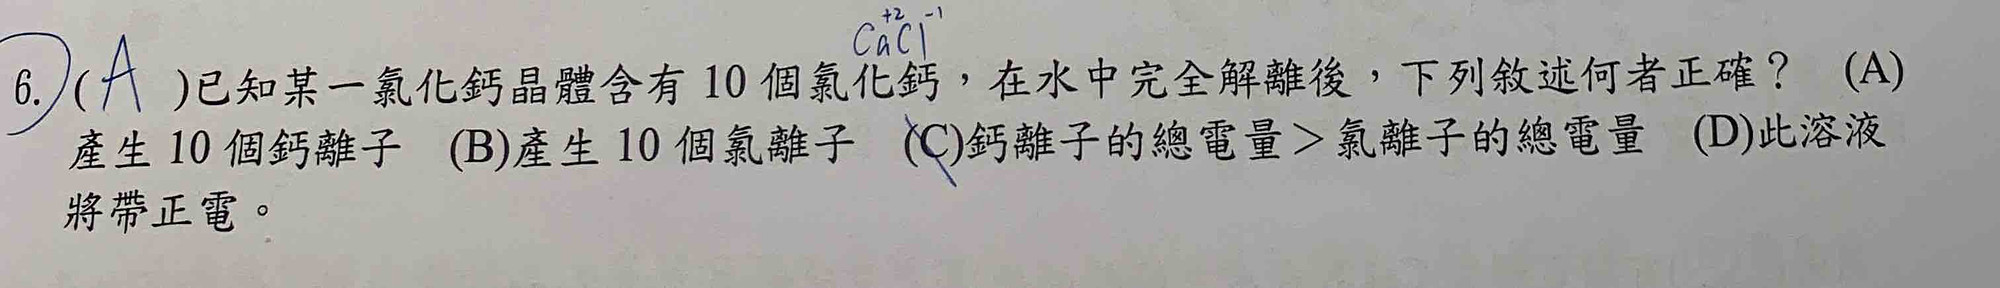 +2 -1
CaCl
6.(A)已知某一氯化鈣晶體含有 10 個氯化鈣，在水中完全解離後，下列敘述何者正確？ (A)
產生 10 個鈣離子 (B)產生 10 個氯離子 (C)鈣離子的總電量＞氯離子的總電量 (D)此溶液
將帶正電。